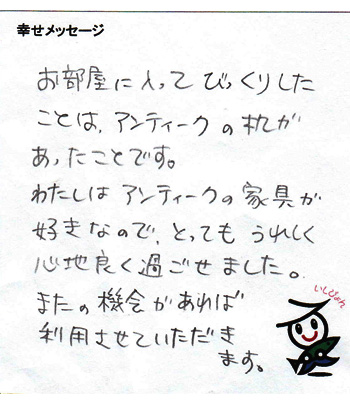 幸せメッセージ
お部屋に入ってびっくりした
ことは、アンティークの机が
あったことです。
わたしはアンティークの家具が
好きなので、とっても うれしく
心地良く過ごせました。
またの機会があれば
利用させていただき
ます。
いしぴょん